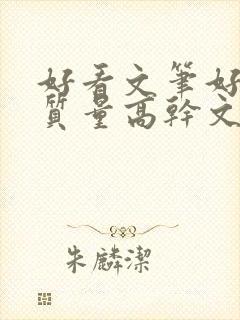 好看文筆好
質量高幹文
朱麟潔